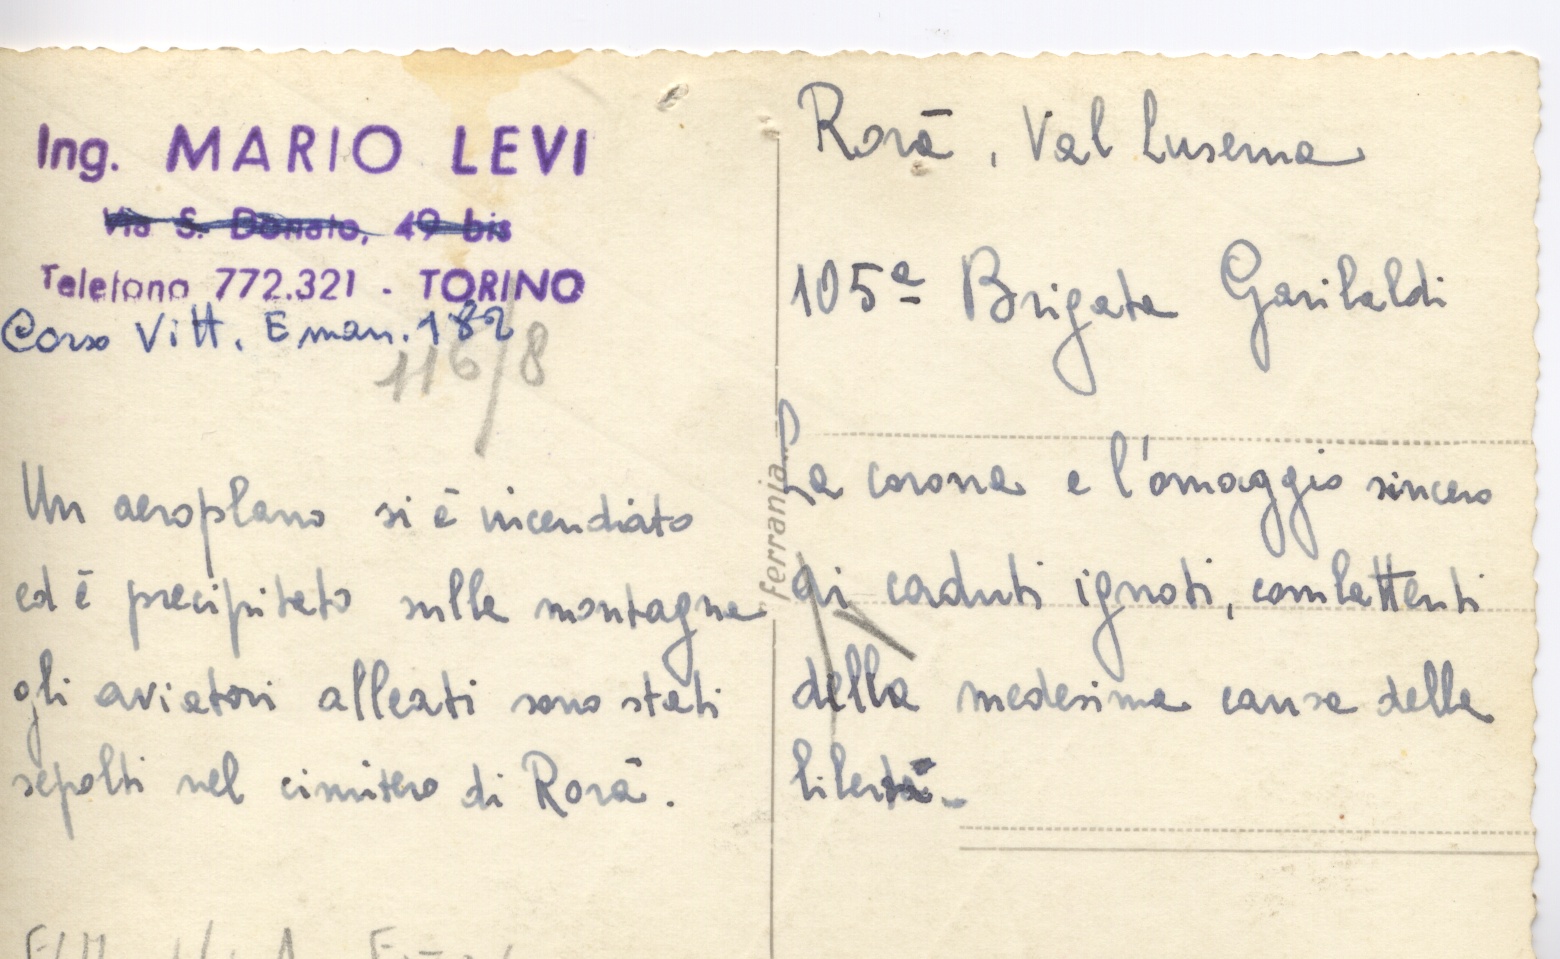 Ing. MARIO LEVI
Via S. Donato, 49 bis
Telefono 772.321 - TORINO
Corso Vitt. Eman. 182
116/8
Un aeroplano si è incendiato
ed è precipitato sulla montagna
gli aviatori alleati sono stati
sepolti nel cimitero di Rorà.
ferrania
Rorà, Val Luserna
105ª Brigata Garibaldi
La corona e l'omaggio sincero
ai caduti ignoti, combattenti
della medesima causa della
libertà.